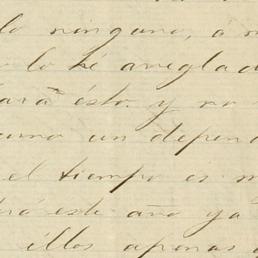 lo ninguno, a
lo hé arreglad
ará ésto. y no
como un depend
el tiempo es m
ró este año ya
ellos apenas